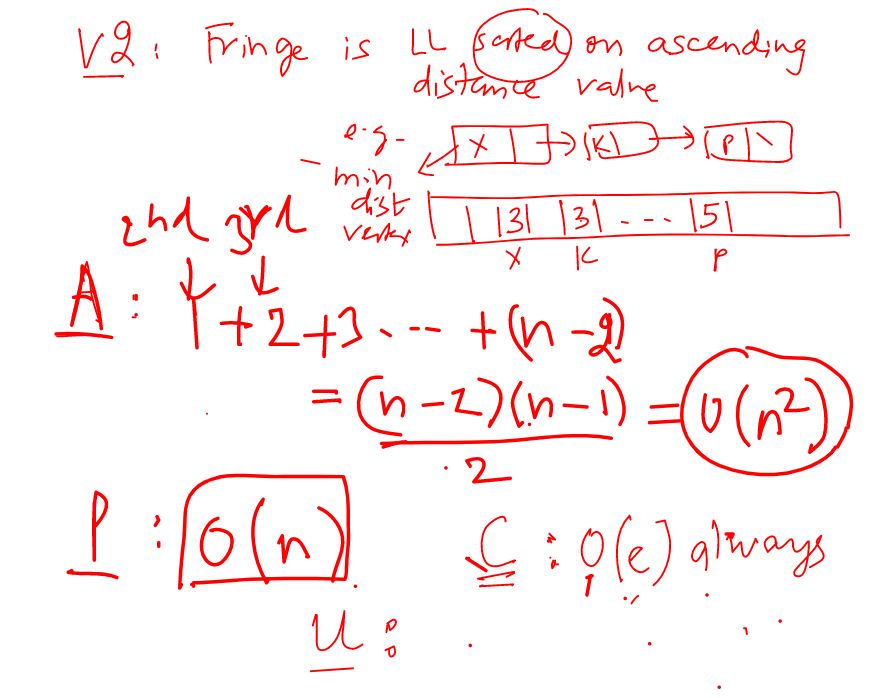 V2: Fringe is LL sorted on ascending
distance value
e.g. X K P
min
dist
vertex
3 3 ... 5
X K P
2nd 3rd
A: 1+2+3 ... +(n-2)
= (n-2)(n-1) = O(n²)
2
P: O(n)
C: O(e) always
U: